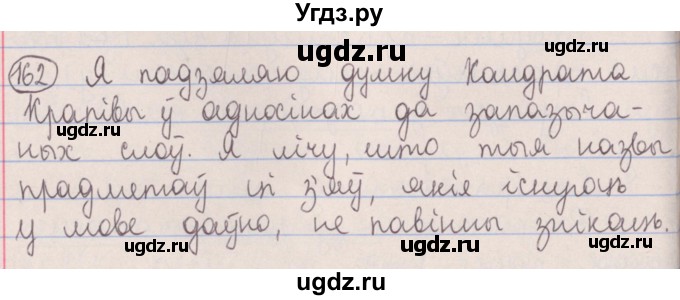 Угдз.ру
ugdz.ru
162 Я падзяляю думку Кандрата
ugdz.ru
Крапівы ў адносінах да запазыча-
ugdz.ru ugdz.ru
ных слоў. Я лічу, што тыя назвы
ugdz.ru
прадметаў ці з'яў, якія існуюць
ugdz.ru ugdz.ru
у мове даўно, не павінны знікаць.
ugdz.ru